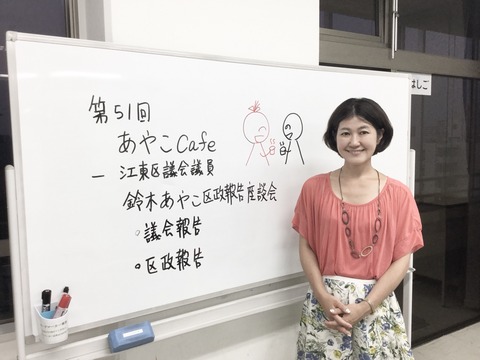 第51回
あやこCafe
ー江東区議会議員
鈴木あやこ区政報告座談会
◦議会報告
◦区政報告
はしご